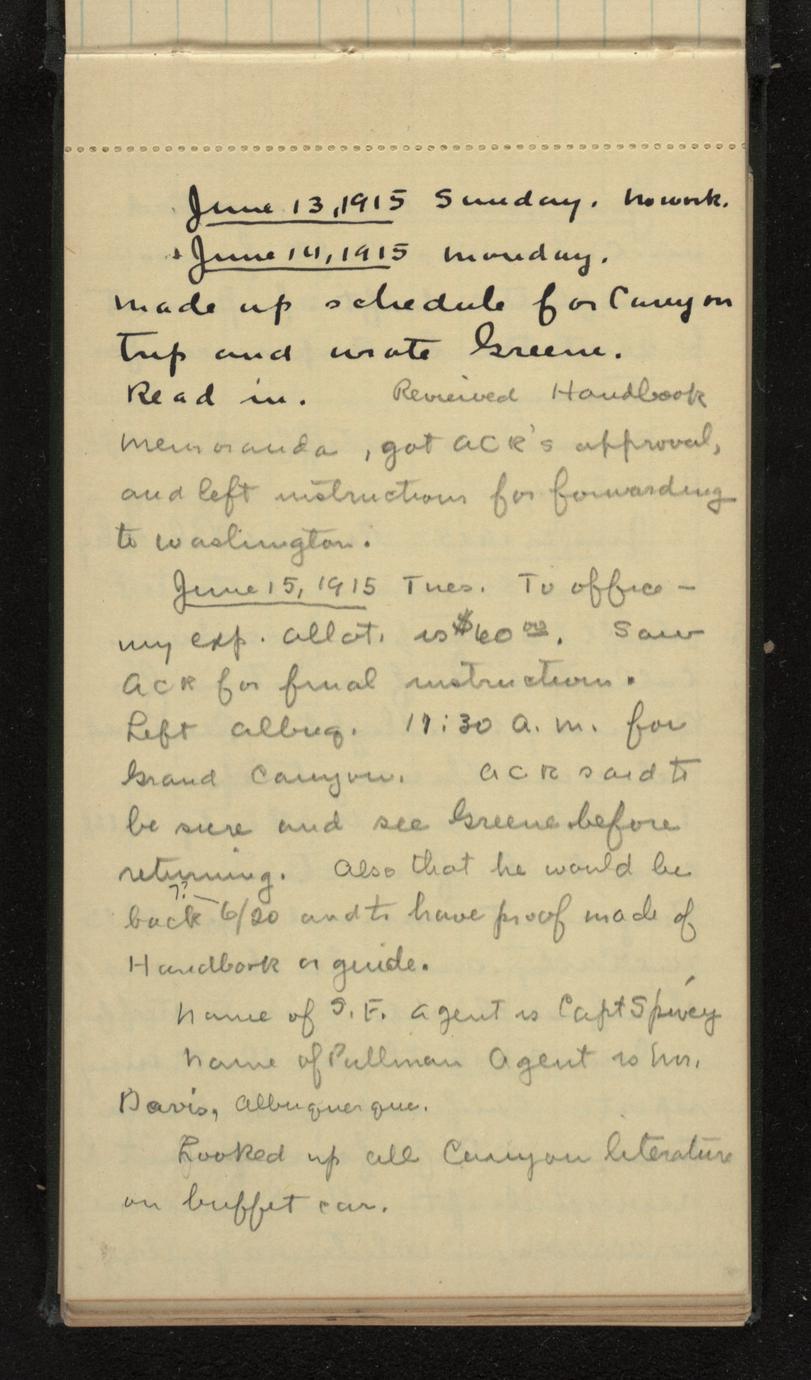 June 13, 1915 Sunday. No work.
June 14, 1915 Monday.
Made up schedule for Canyon
trip and wrote Greene.
Read in. Reviewed Handbook
memoranda, got ACR's approval,
and left instructions for forwarding
to Washington.
June 15, 1915 Tues. To office -
my exp. allot. is $60 00. Saw
ACR for final instructions.
Left Albuq. 11:30 A.M. for
Grand Canyon. ACR said to
be sure and see Greene before
returning. Also that he would be
??
back 6/20 and to have proof made of
Handbook or guide.
Name of S.F. Agent is Capt Spivey
Name of Pullman Agent is Mr.
Davis, Albuquerque.
Looked up all Canyon literature
on buffet car.